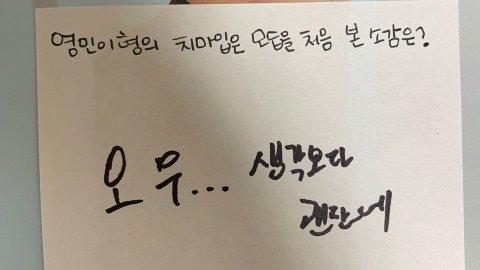 영민이형의 치마입은 모습을 처음 본 소감은?
오우... 생각보다
괜찮으네